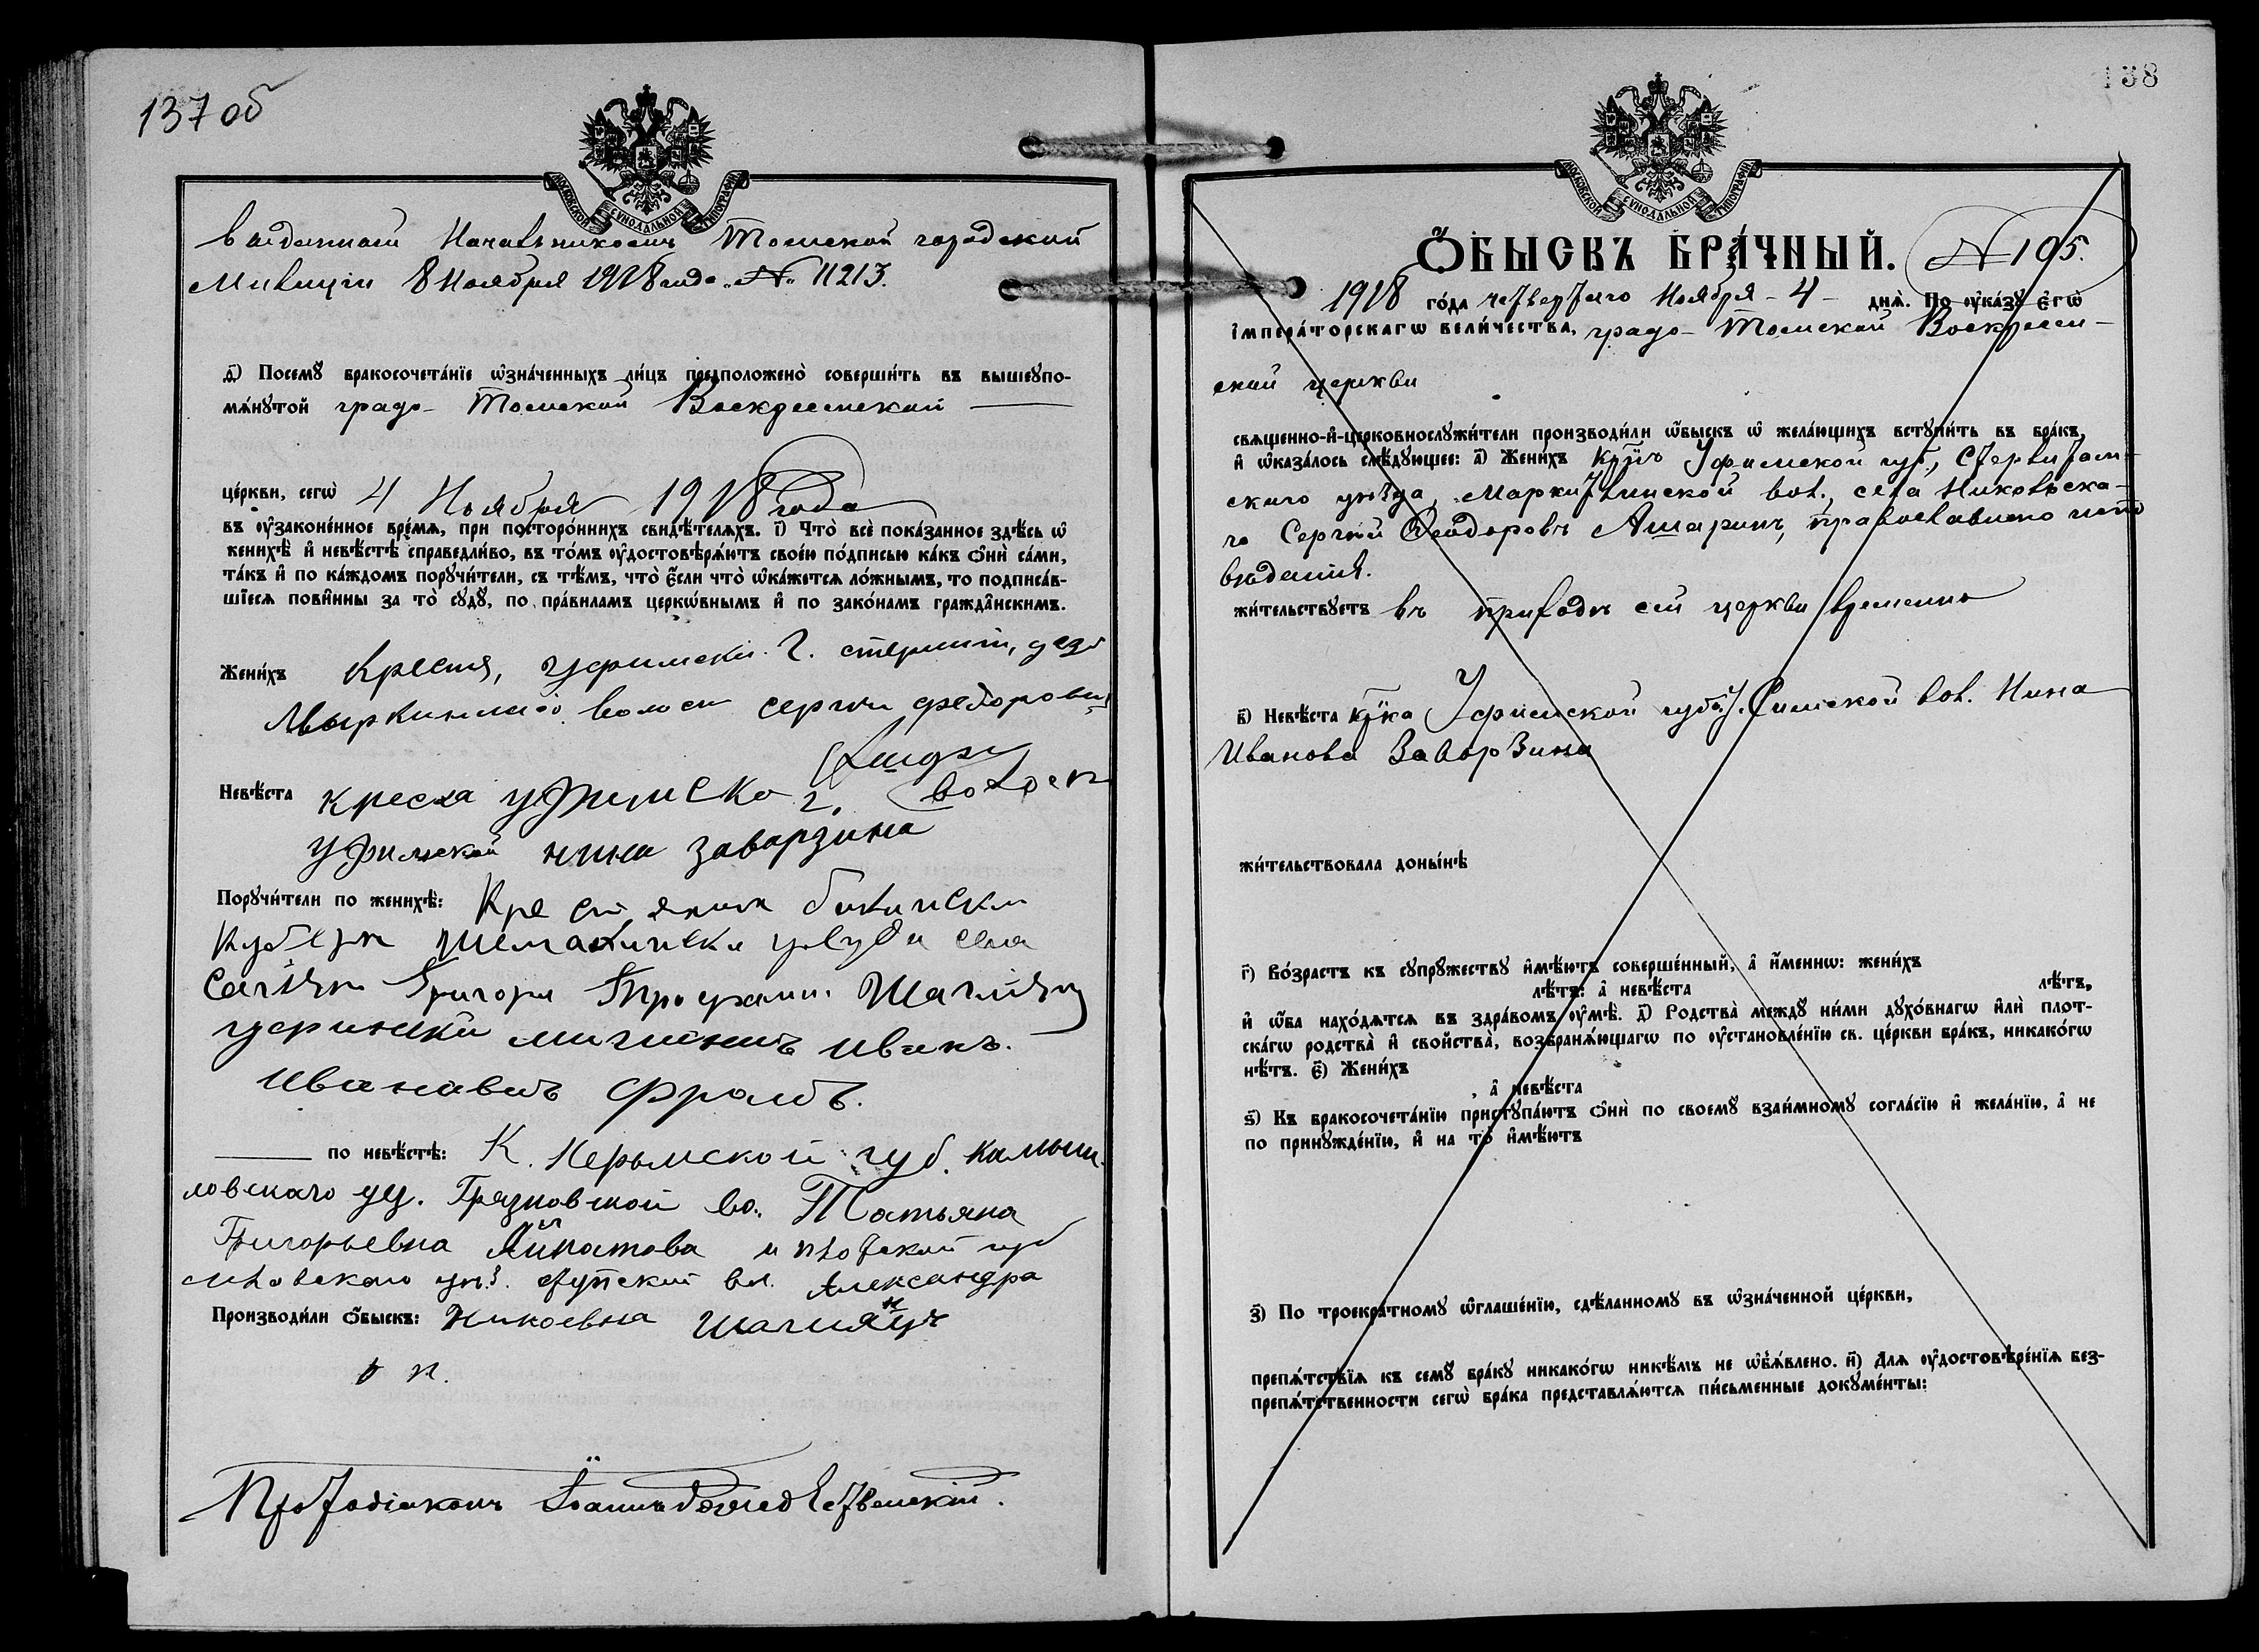 137 об
МОСКОВСКОЙ СУНОДАЛЬНОЙ ТИПОГРАФІИ
выданной Начальникомъ Томской городской
Милиціи 8 Ноября 1918 года № 11213.
д҃і) Посемꙋ̀ бракосочета́нїе ѡ҆зна́ченныхъ ли́цъ предположено̀ соверши́ть въ вышеꙋпо-
мѧ́нутой градо-Томской Воскресенской
це́ркви, сегѡ̀ 4 Ноября 1918 года
въ ᲂу҆законе́нное вре́мѧ, при посторо́ннихъ свидѣ́телѧхъ. і҃) Что̀ всѐ пока́занное здѣ́сь ѡ҆
женихѣ̀ и҆ невѣ́стѣ справедли́во, въ то́мъ ᲂу҆достовѣрѧ́ютъ свое́ю по́дписью ка́къ ѻ҆нѝ са́ми,
та́къ и҆ по ка́ждомъ порꙋчи́тели, съ тѣ́мъ, что̀ є҆́сли что̀ ѡ҆ка́жетсѧ ло́жнымъ, то подписа́в-
шїесѧ пови́нны за то̀ сꙋдꙋ̀, по пра́виламъ церко́внымъ и҆ по зако́намъ гражда́нскимъ.
Жени́хъ Крестя, уфимски. г.
волости серги федорови
Невѣ́ста креска уфимско г. волост
уфимской нина заварзина
Порꙋчи́тели по женихѣ̀: Крестянин бакински
кубери шемахински уезда села
Григори Трофими. Шагиянц
уфимски мещенинъ иванъ.
ивановичъ Фролъ.
по невѣ́стѣ: К. Пермской губ. камыш.
ловскаго уц. Грязновской во. Татьяна
Григорьевна Айпатова и губ
уѣз. вл. Александра
Производи́ли ѻ҆́быскъ: Никоевна Шагиянцъ
Протодіаконъ Іоаннъ
138
МОСКОВСКОЙ СУНОДАЛЬНОЙ ТИПОГРАФІИ
Ѻ҆́БЫСКЪ БРА́ЧНЫЙ. № 105.
1918 го́да четвертаго Ноября - 4 - днѧ̀. По ᲂу҆ка́зꙋ є҆гѡ̀
і҆мпера́торскагѡ вели́чества, градо-Томской Воскресен-
ской церкви
свѧще́нно-и҆-церковнослꙋжи́тели производи́ли ѻ҆́быскъ ѡ҆ жела́ющихъ встꙋпи́ть въ бра́къ,
и҆ ѡ҆каза́лось слѣ́дꙋющее: а҃) Жени́хъ кр-нъ Уфимской губ., Стерлитам-
скаго уѣзда, вол., села Никольска-
го Сергѣй Ѳеодоровъ Ашаринъ, православнаго испо
вѣданія.
жи́тельствꙋетъ въ приходѣ сей церкви временно
в҃) Невѣ́ста кр-ка Уфимской губ. и у. Симской вол. Нина
Иванова Заворзина
жи́тельствовала доны́нѣ
г҃) Во́зрастъ къ сꙋпрꙋ́жествꙋ и҆мѣ́ютъ соверше́нный, а҆ и҆́менню: жени́хъ
лѣ́тъ: а҆ невѣ́ста лѣ́тъ,
и҆ ѻ҆́ба нахо́дѧтсѧ въ здра́вомъ ᲂу҆мѣ̀. д҃) Родства̀ междꙋ̀ ни́ми дꙋхо́внагѡ и҆лѝ плот-
ска́гѡ родства̀ и҆ свойства̀, возбранѧ́ющагѡ по ᲂу҆становле́нїю св. це́ркви бра́къ, никако́гѡ
нѣ́тъ. є҃) Жени́хъ
, а҆ невѣ́ста
ѕ҃) Къ бракосочета́нїю пристꙋпа́ютъ ѻ҆нѝ по своемꙋ̀ взаи́мномꙋ согла́сїю и҆ жела́нїю, а҆ не
по принꙋжде́нїю, и҆ на то̀ и҆мѣ́ютъ
з҃) По троекра́тномꙋ ѡ҆глаше́нїю, сдѣ́ланномꙋ въ ѡ҆зна́ченной це́ркви,
препѧ́тствїѧ къ семꙋ̀ бра́кꙋ никако́гѡ никѣ́мъ не ѡ҆б̾ѧ́влено. и҃) Длѧ ᲂу҆достовѣре́нїѧ без-
препѧ́тственности сегѡ̀ бра́ка представлѧ́ютсѧ пи́сьменные докꙋме́нты: